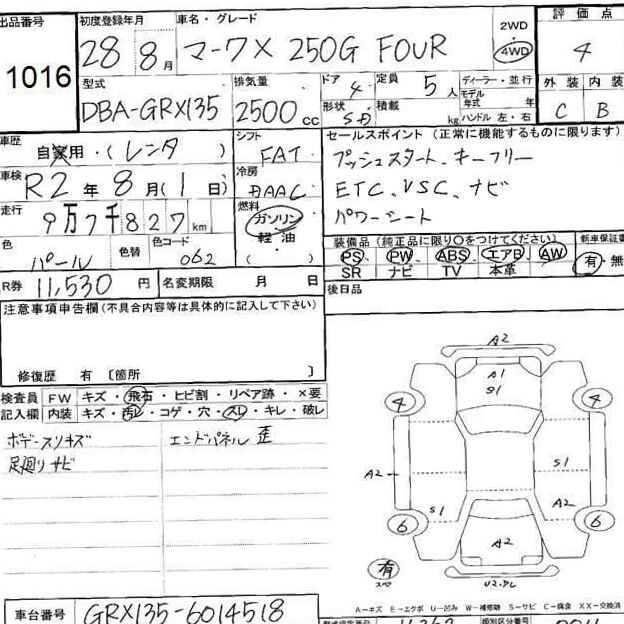 出品番号
1016
初度登録年月
28 8月
車名・グレード
マークX 250G FOUR
2WD
4WD
評価点
4
外装 内装
C B
型式
DBA-GRX135
排気量
2500cc
ドア 4
形状 SD
定員 5人
積載 kg
ディーラー・並行
モデル年式 年
ハンドル 左・右
車歴
自家用・(レンタ)
シフト
FAT
車検
R2年8月(1日)
冷房
AAC
走行
9万7千827km
燃料
ガソリン
軽油
( )
色
パール
色替
色コード
062
R券 11,530円
名変期限 月 日
セールスポイント(正常に機能するものに限ります)
プッシュスタート、キーフリー
ETC、VSC、ナビ
パワーシート
装備品(純正品に限り○をつけてください)
PS PW ABS エアB AW
SR ナビ TV 本革
新車保証書
有・無
後日品
注意事項申告欄(不具合内容等は具体的に記入して下さい)
修復歴 有〔箇所 〕
検査員記入欄
FW キズ・飛石・ヒビ割・リペア跡・×要
内装 キズ・汚れ・コゲ・穴・スレ・キレ・破レ
ボデースリキズ
足廻りサビ
エンドパネル歪
A2
A1
S1
4
4
A2
S1
S1
A2
6
6
A2
有
スペ
U2.アレ
A−キズ E−エクボ U−凹み W−補修跡 S−サビ C−腐食 XX−交換済
車台番号
GRX135-6014518
類別区分番号